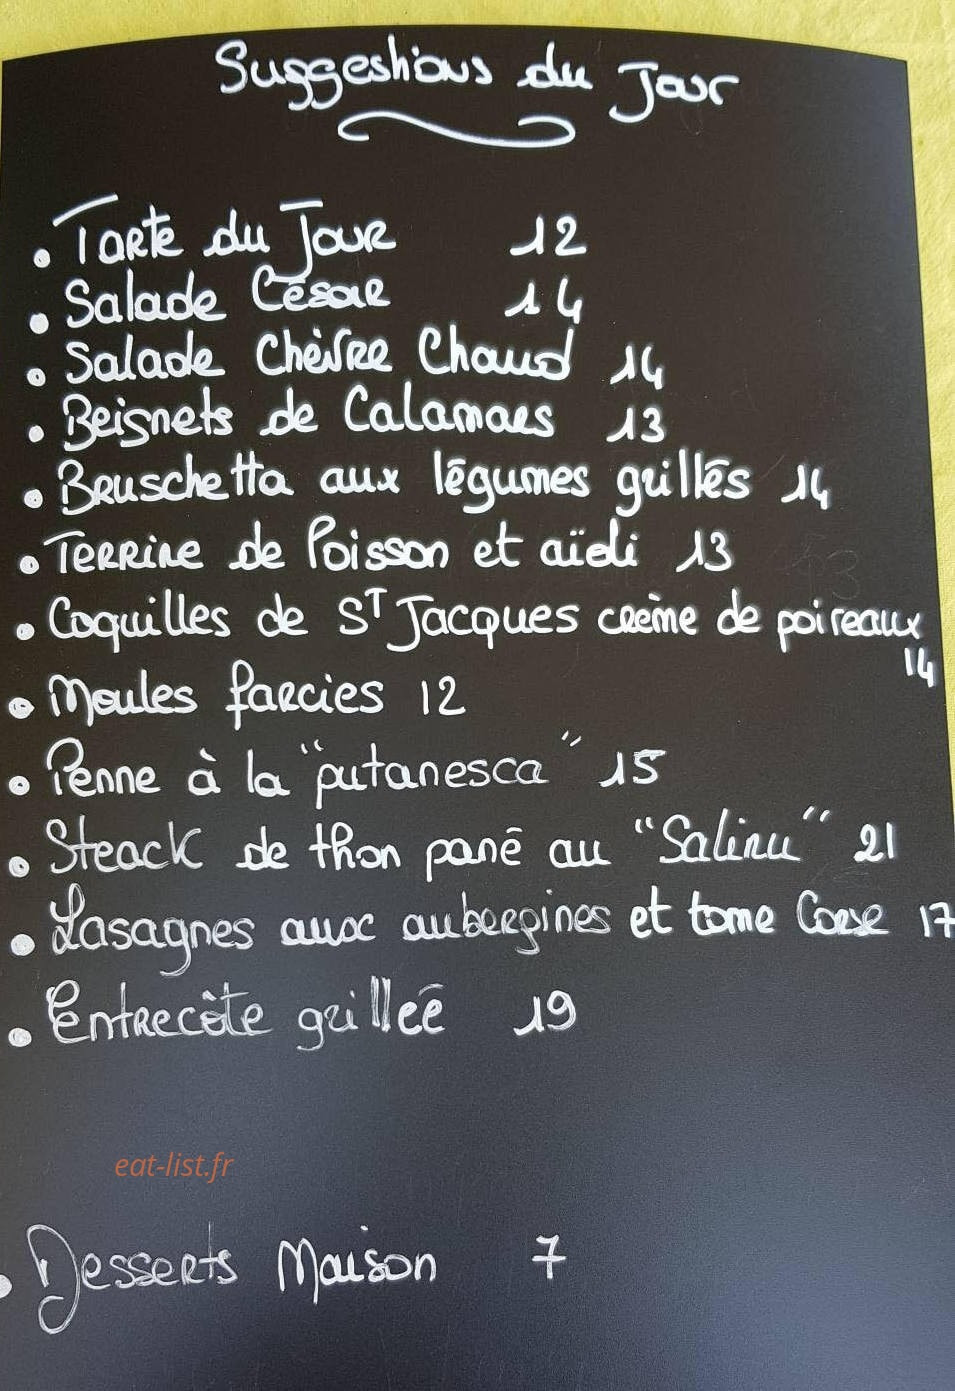 Suggestions du Jour
• Tarte du Jour 12
• Salade César 14
• Salade Chèvre Chaud 14
• Beignets de Calamars 13
• Bruschetta aux légumes grillés 14
• Terrine de Poisson et aïoli 13
• Coquilles de ST Jacques crème de poireaux
14
• Moules farcies 12
• Penne à la "putanesca" 15
• Steack de thon pané au "Salinu" 21
• Lasagnes aux aubergines et tome Corse 17
• Entrecôte grilleé 19
eat-list.fr
• Desserts Maison 7